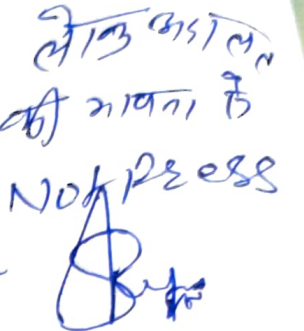 लोक अदालत
की भावना से
Not press